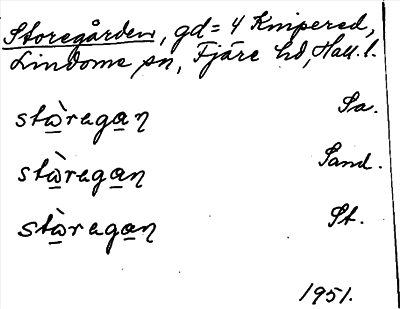 Storegården, gd = 4 Knipered,
Lindome sn, Fjäre hd, Hall. l.
stὼ̲raga̲ɳ Sa.
stὼ̲raga̲ɳ Sand.
stὼ̲raga̲ɳ St.
1951.